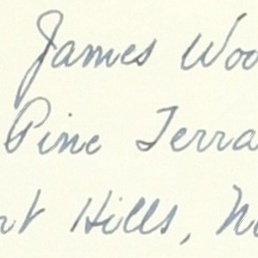 James Woo
Pine Terra
rt Hills, N